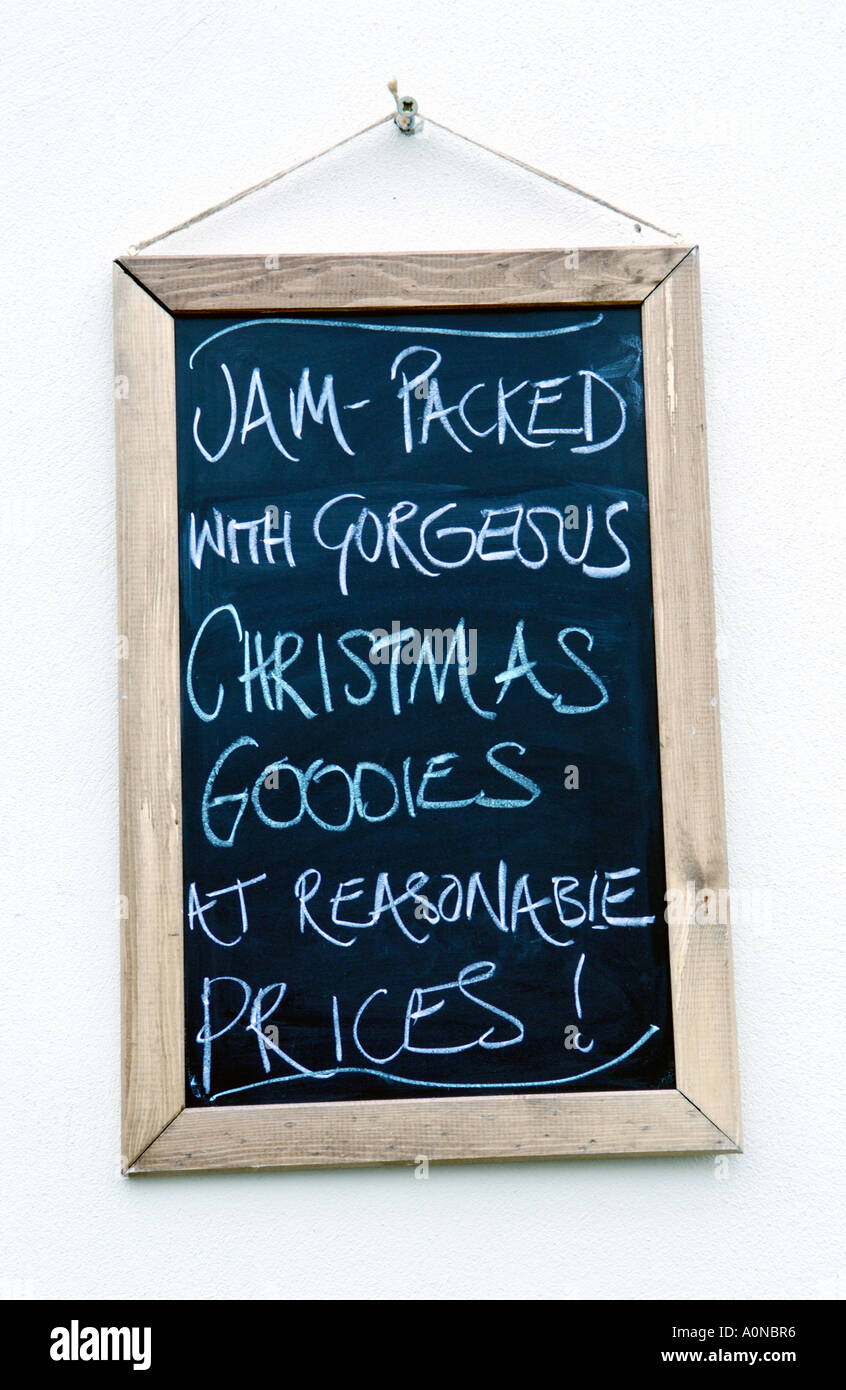 JAM-PACKED
WITH GORGEOUS
CHRISTMAS
GOODIES
AT REASONABLE
PRICES!
alamy
Image ID: A0NBR6
www.alamy.com